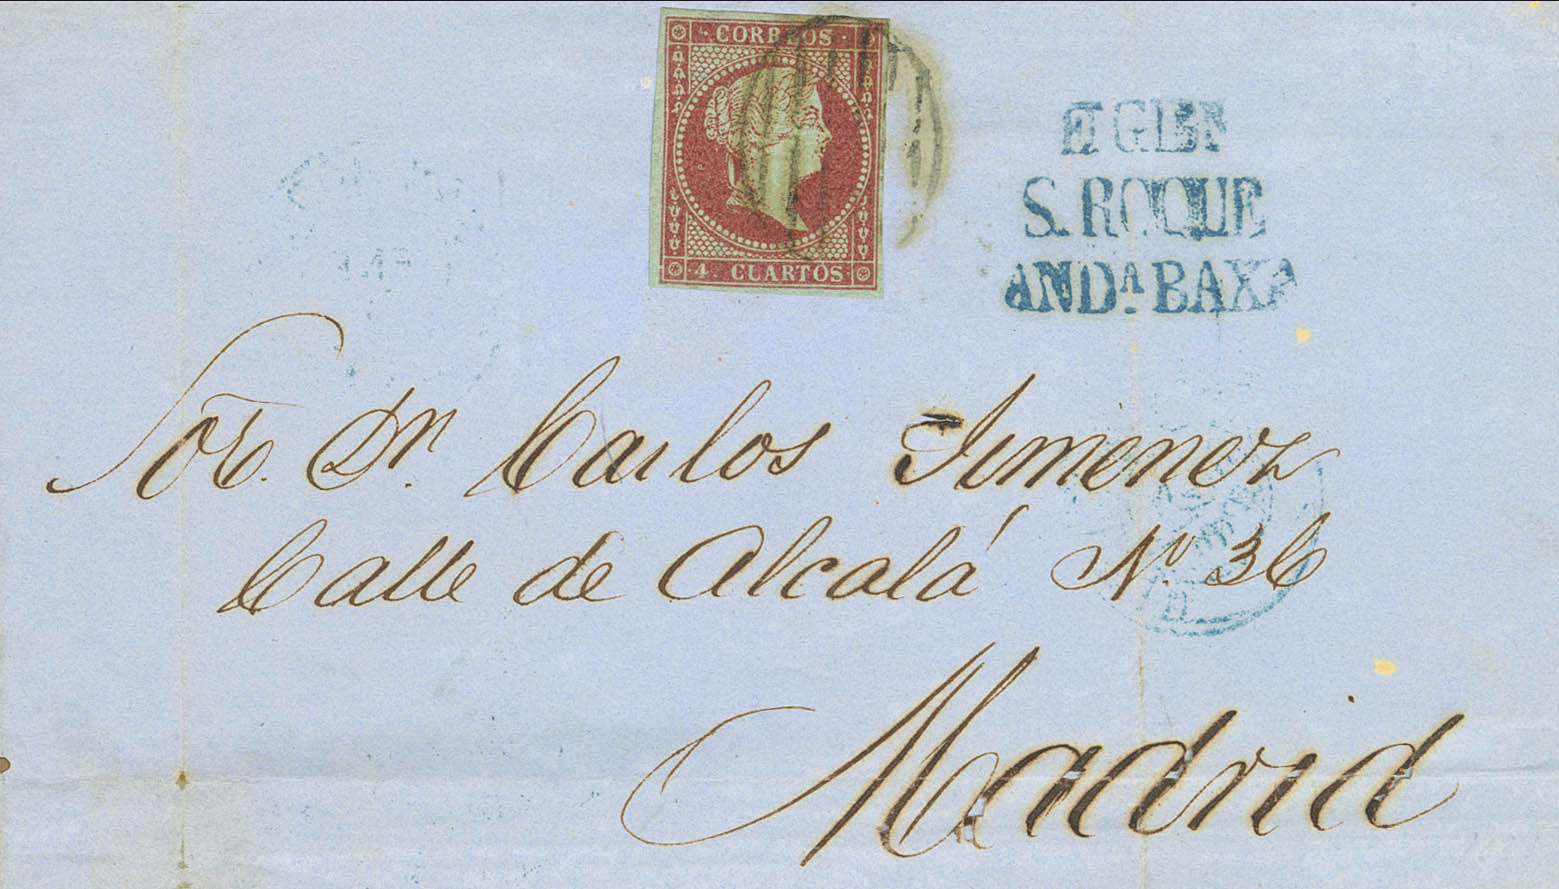 CORREOS
4 CUARTOS
S. ROQUE
ANDᴬ BAXA
Sor. Dn. Carlos Jimenez
Calle de Alcalá No. 36
Madrid